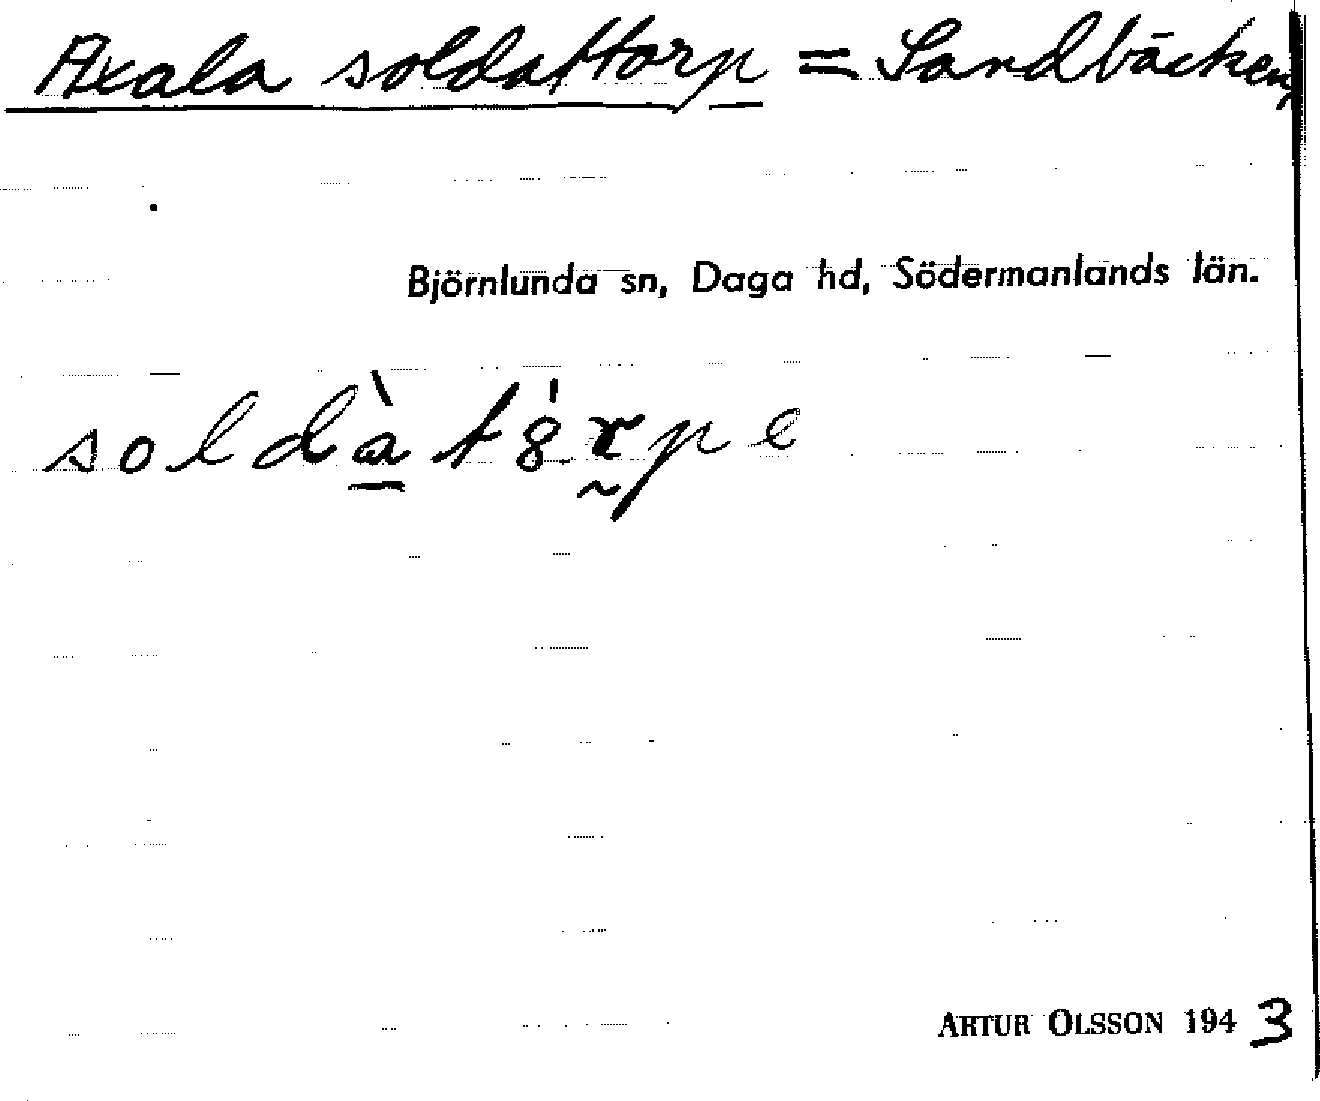 Axala soldattorp = Sandbäcken
Björnlunda sn, Daga hd, Södermanlands län.
soldàt8́rpe
ARTUR OLSSON 1943